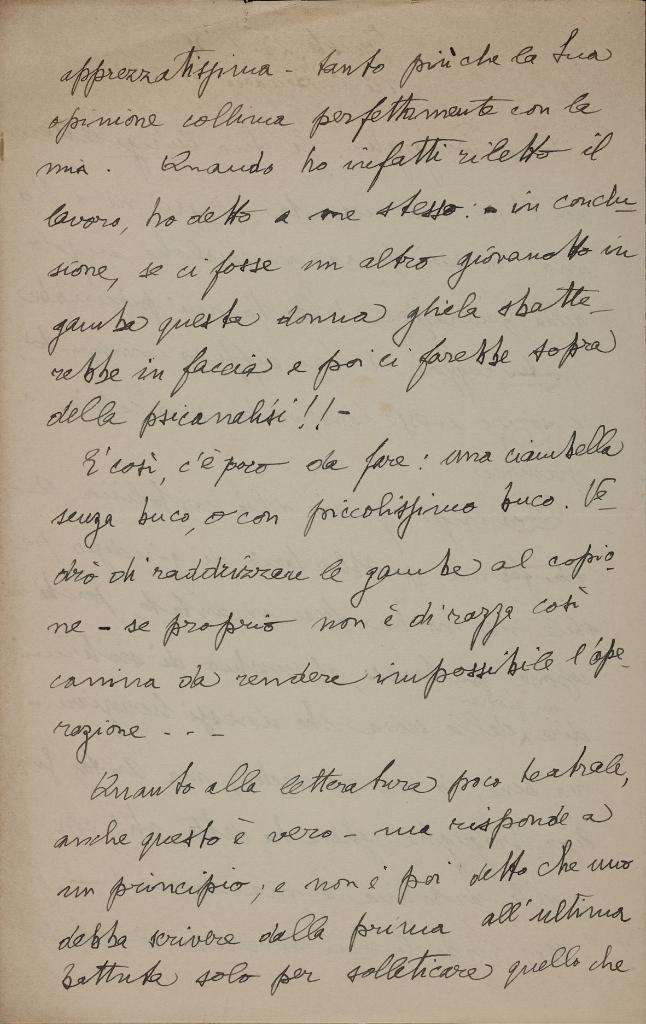 apprezzatissima - tanto più che la Sua
opinione collima perfettamente con la
mia. Quando ho infatti riletto il
lavoro, ho detto a me stesso: - in conclu-
sione, se ci fosse un altro giovanotto in
gamba questa donna gliela sbatte-
rebbe in faccia e poi ci farebbe sopra
della psicanalisi!! -
E' così, c'è poco da fare: una ciambella
senza buco, o con piccolissimo buco. Ve-
drò di raddrizzare le gambe al copio-
ne - se proprio non è di razza così
canina da rendere impossibile l'ope-
razione - - -
Quanto alla letteratura poco teatrale,
anche questo è vero - ma risponde a
un principio; e non è poi detto che uno
debba scrivere dalla prima all'ultima
battuta solo per solleticare quello che